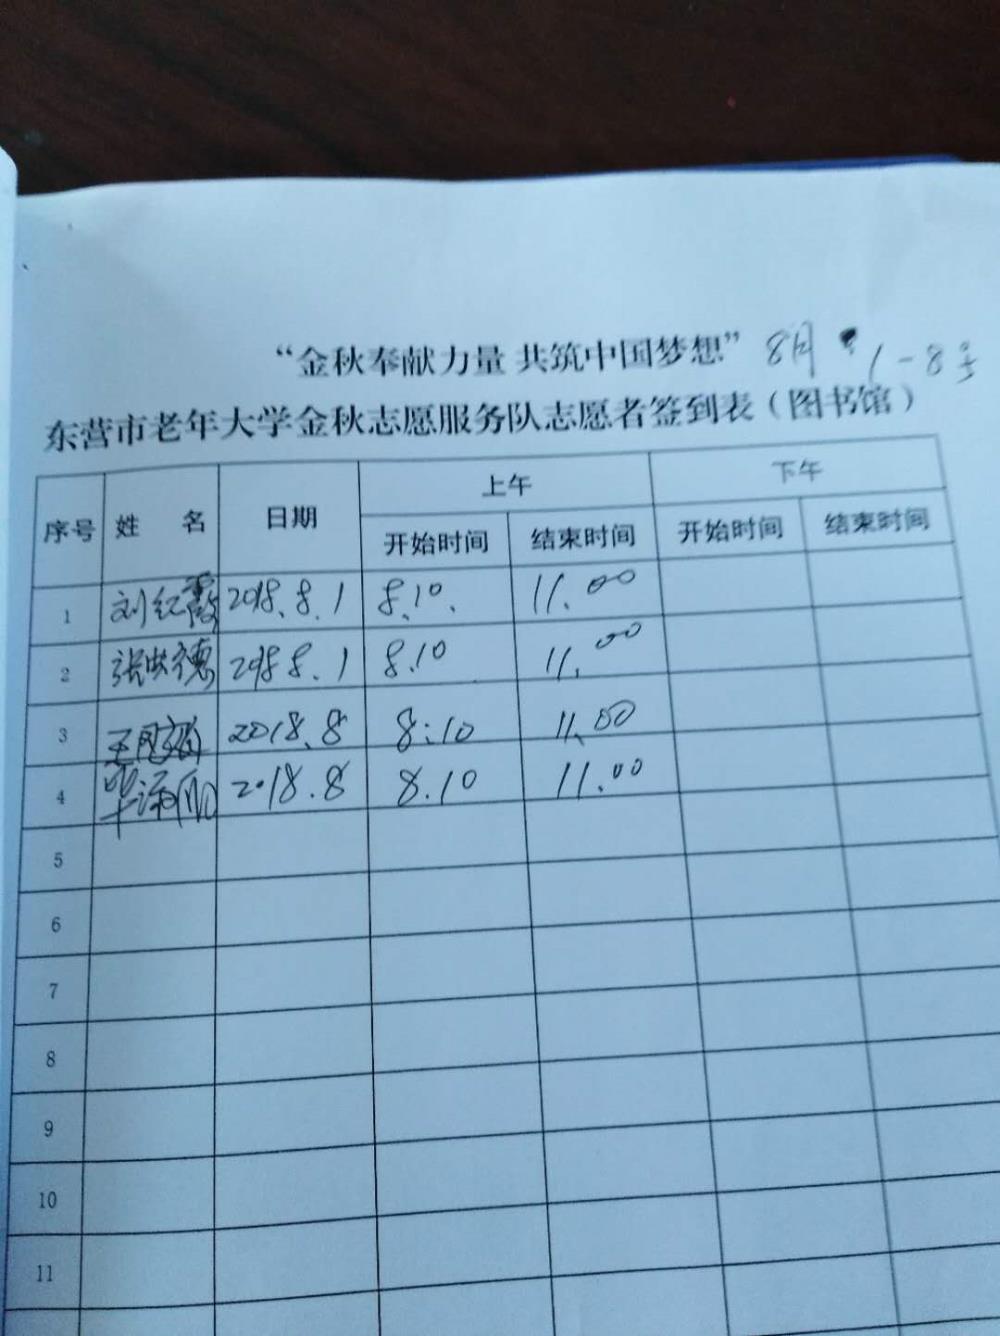 “金秋奉献力量 共筑中国梦想” 8月 1-8号
东营市老年大学金秋志愿服务队志愿者签到表（图书馆）
序号 姓 名 日期 上午 下午
开始时间 结束时间 开始时间 结束时间
1 刘红霞 2018.8.1 8.10. 11.00
2 张洪德 2018 8.1 8.10 11.00
3 2018.8 8:10 11.00
4 2018.8 8.10 11.00
5
6
7
8
9
10
11